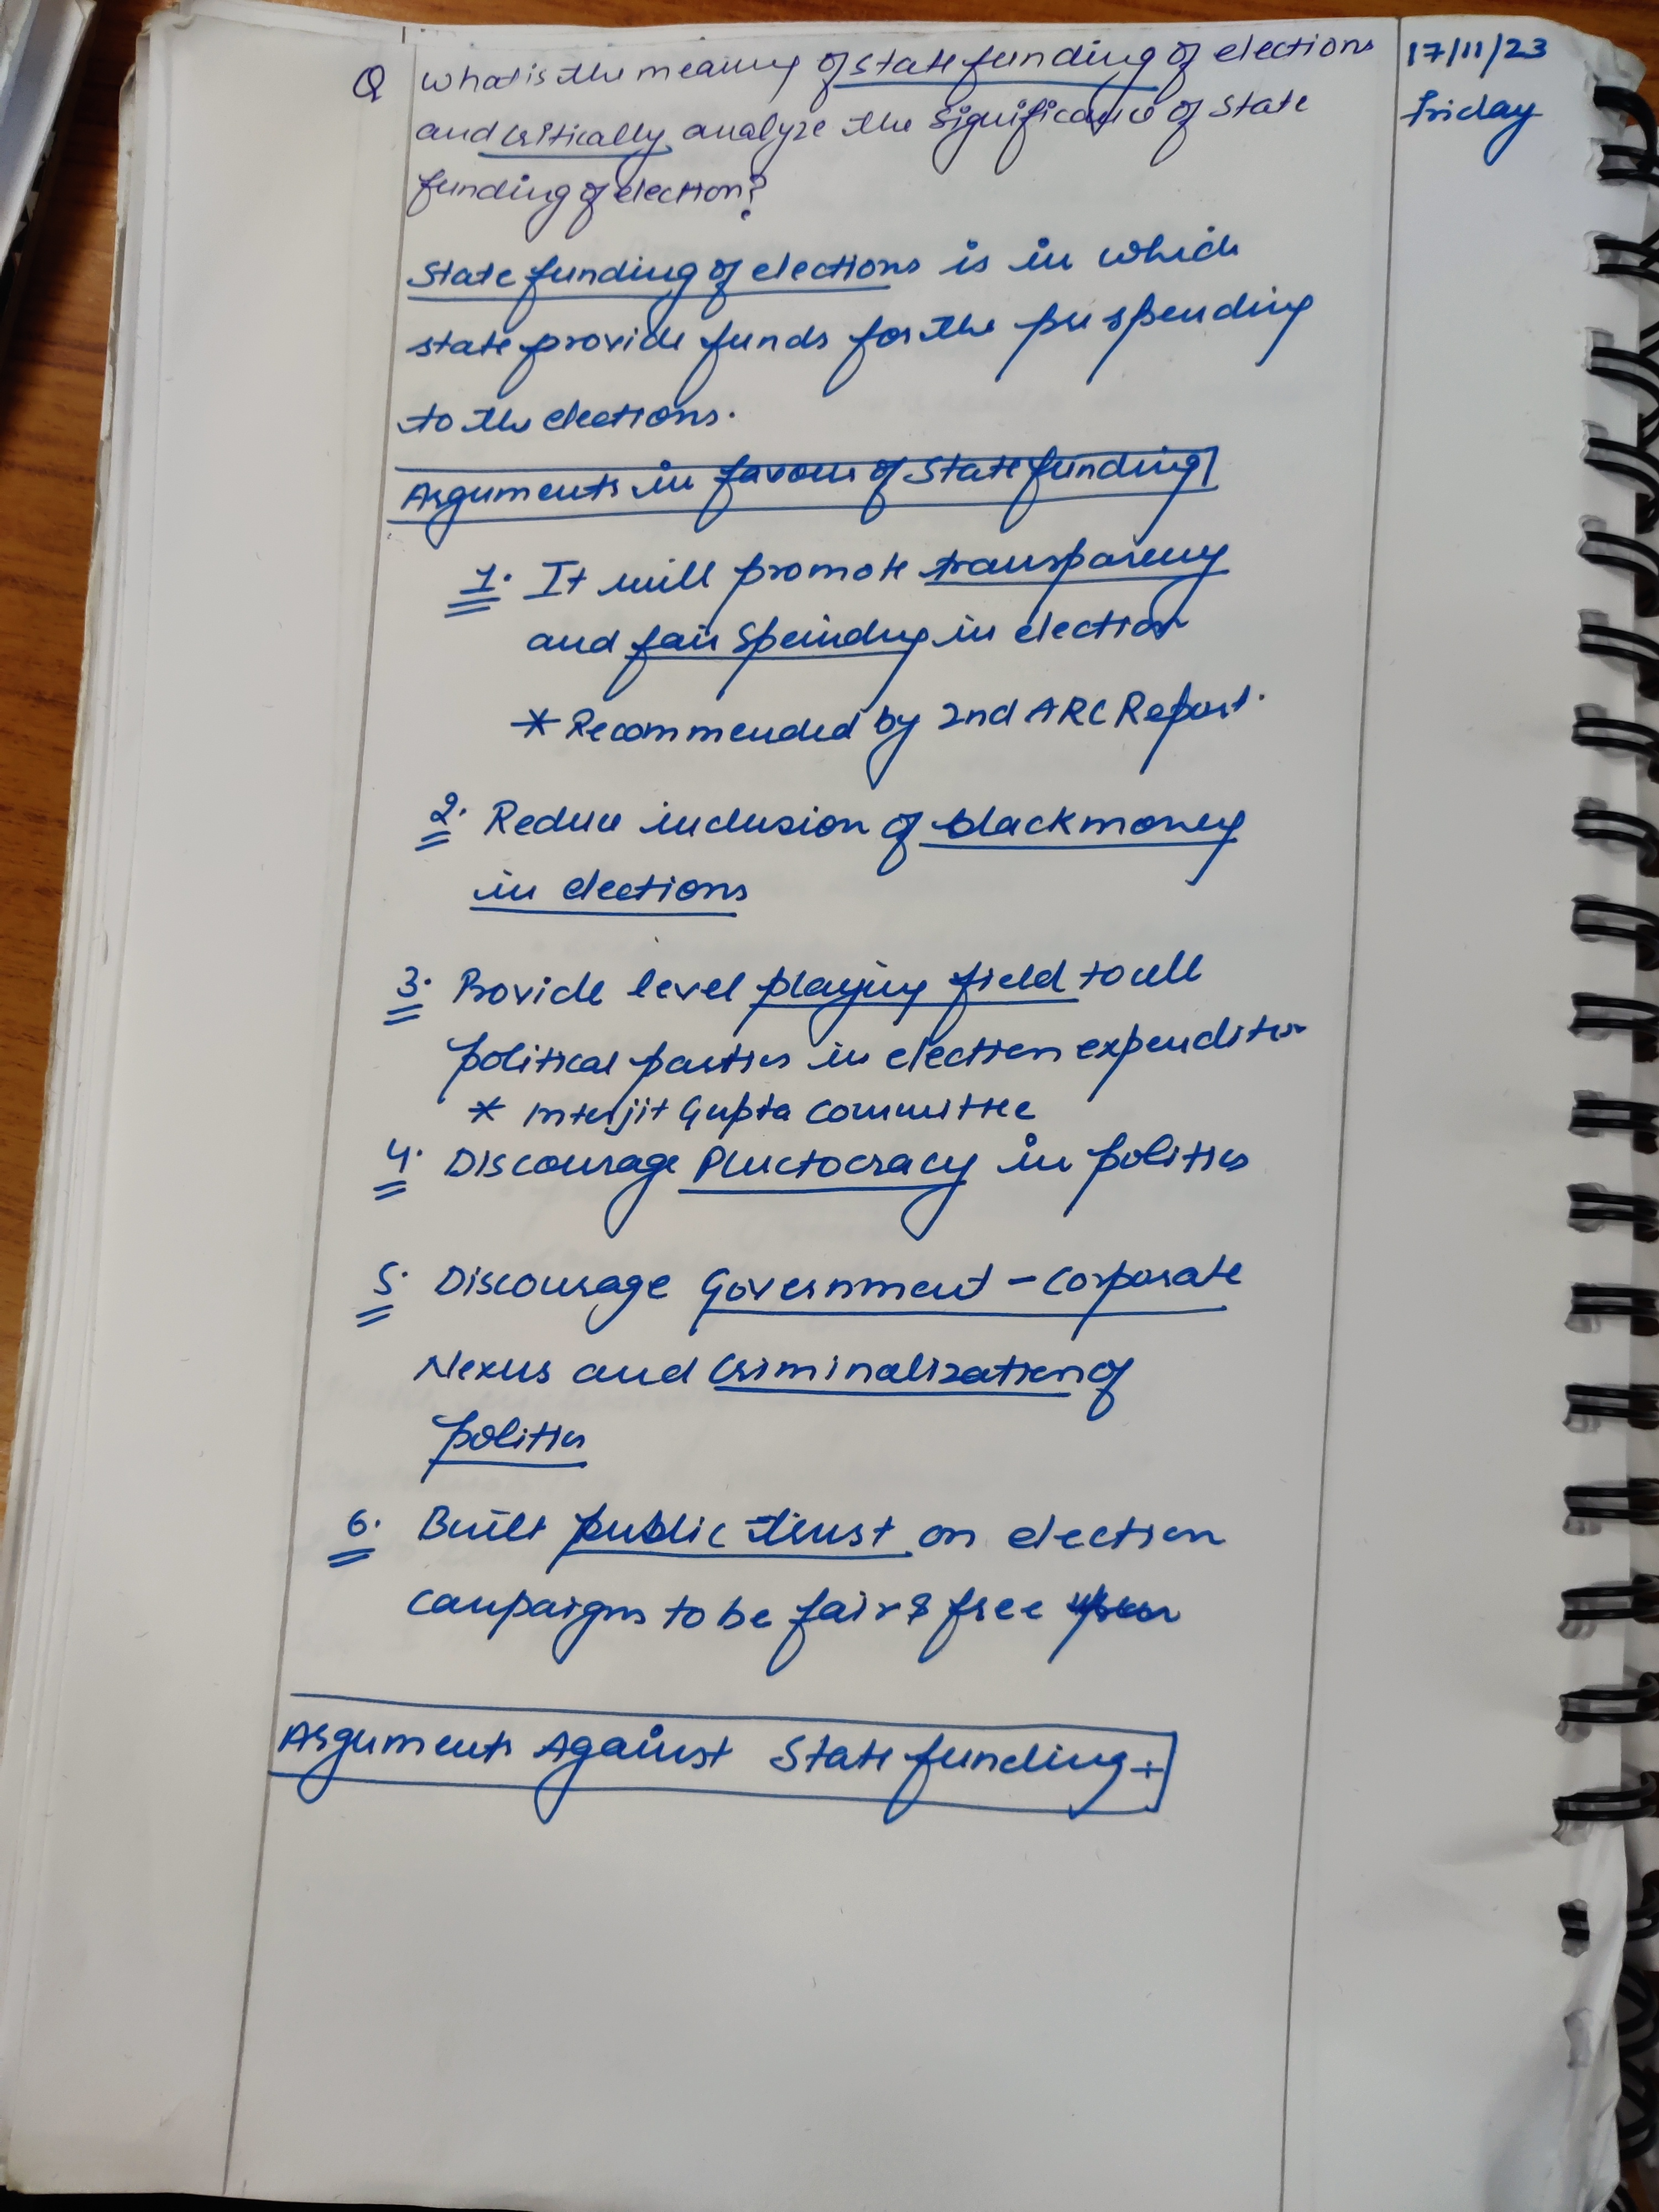 Q What is the meaning of state funding of elections
and critically analyze the significance of state
funding of election?
17/11/23
Friday
State funding of elections is in which
state provide funds for the spending
to the elections.
Arguments in favour of State funding
1. It will promote transparency
and fair Speinding in election
* Recommended by 2nd ARC Report.
2. Reduce inclusion of blackmoney
in elections
3. Provide level playing field to all
political parties in election expenditure
* Interjit Gupta Committee
4. Discourage Pluctocracy in politics
5. Discourage Government - Corporate
Nexus and Criminalization of
politics
6. Built public trust on election
campaigns to be fair & free
Arguments Against State funding